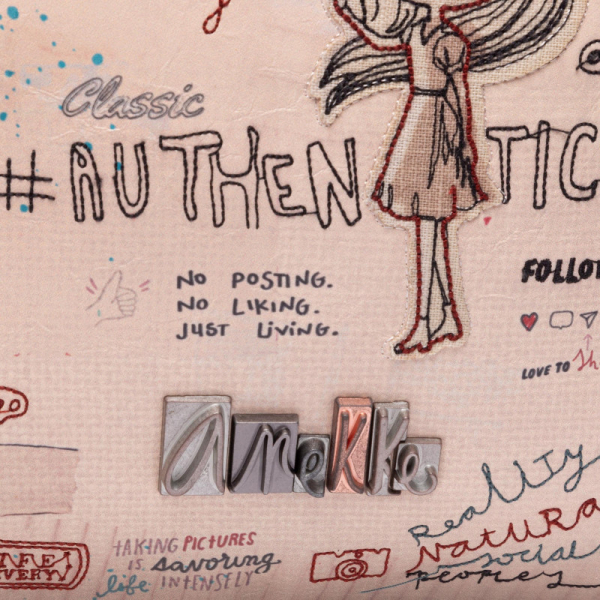 Classic
#AUTHENTIC
NO POSTING.
NO LIKING.
JUST LIVING.
FOLLO
LOVE TO
Anekke
TAKING PICTURES
IS SAVORING
life INTENSELY
Reality
NATURA
social